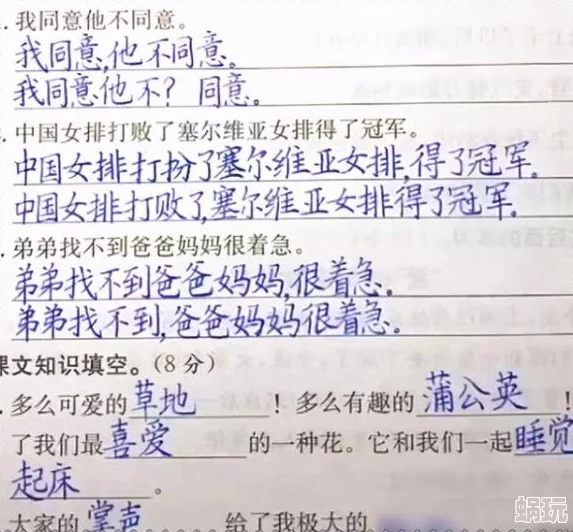 . 我同意他不同意。
我同意,他不同意。
我同意他不? 同意。
. 中国女排打败了塞尔维亚女排得了冠军。
中国女排打扮了塞尔维亚女排,得了冠军.
中国女排打败了,塞尔维亚女排得了冠军.
. 弟弟找不到爸爸妈妈很着急。
弟弟找不到爸爸妈妈,很着急。
弟弟找不到,爸爸妈妈很着急。
课文知识填空。(8 分)
. 多么可爱的草地! 多么有趣的蒲公英!
了我们最喜爱的一种花。它和我们一起睡觉
起床。
大家的掌声 给了我极大的
蜗玩